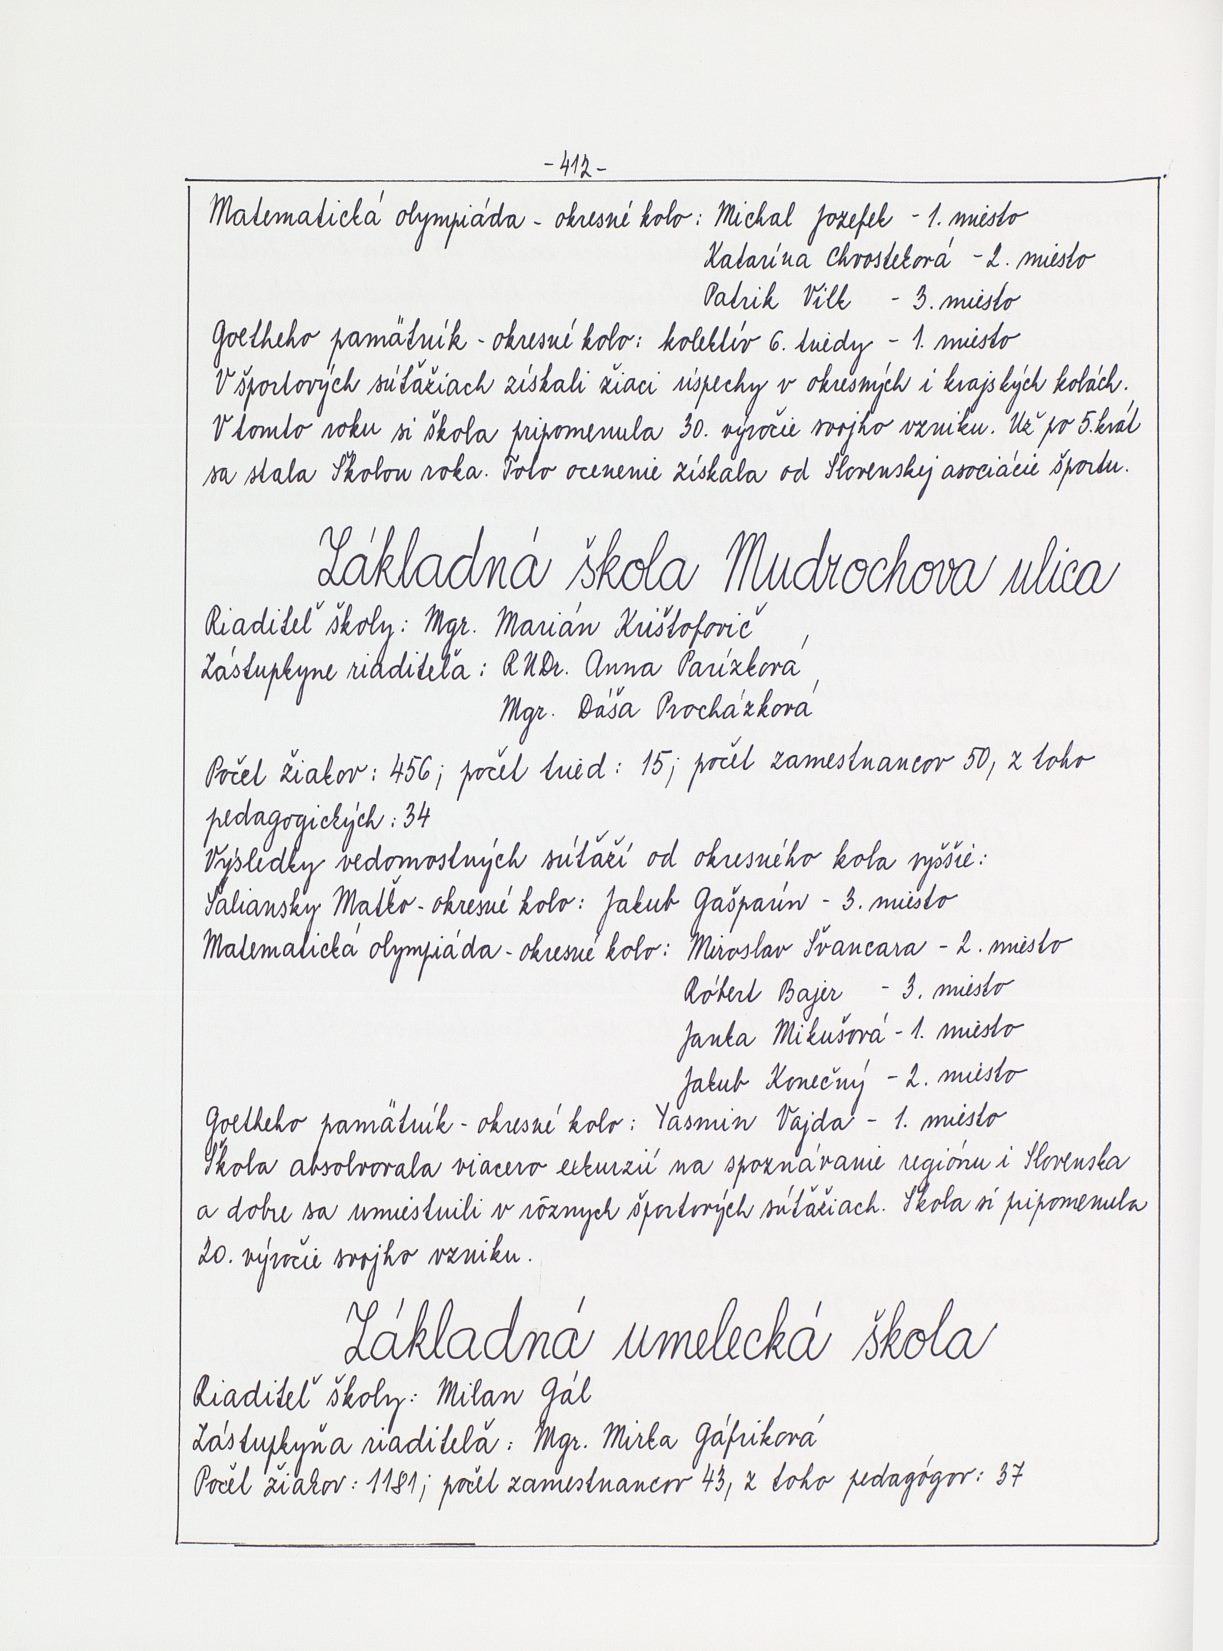 - 412 -
Matematická olympiáda - okresné kolo: Michal Jozefek - 1. miesto
Katarína Chvosteková - 2. miesto
Patrik Vilk - 3. miesto
Goetheho pamätník - okresné kolo: kolektív 6. triedy - 1. miesto
V športových súťažiach získali žiaci úspechy v okresných i krajských kolách.
V tomto roku si škola pripomenula 30. výročie svojho vzniku. Už po 5.krát
sa stala Školou roka. Toto ocenenie získala od Slovenskej asociácie športu.
Základná škola Mudrochova ulica
Riaditeľ školy: Mgr. Marián Krištofovič
Zástupkyne riaditeľa: RNDr. Anna Parízková,
Mgr. Dáša Procházková
Počet žiakov: 456; počet tried: 15; počet zamestnancov 50, z toho
pedagogických: 34
Výsledky vedomostných súťaží od okresného kola vyššie:
Šaliansky Maťko - okresné kolo: Jakub Gašparín - 3. miesto
Matematická olympiáda - okresné kolo: Miroslav Švancara - 2. miesto
Róbert Bajer - 3. miesto
Janka Mikušová - 1. miesto
Jakub Konečný - 2. miesto
Goetheho pamätník - okresné kolo: Yasmin Vajda - 1. miesto
Škola absolvovala viacero exkurzií na spoznávanie regiónu i Slovenska
a dobre sa umiestnili v rôznych športových súťažiach. Škola si pripomenula
20. výročie svojho vzniku.
Základná umelecká škola
Riaditeľ školy: Milan Gál
Zástupkyňa riaditeľa: Mgr. Mirka Gáfriková
Počet žiakov: 1181; počet zamestnancov 43, z toho pedagógov: 37